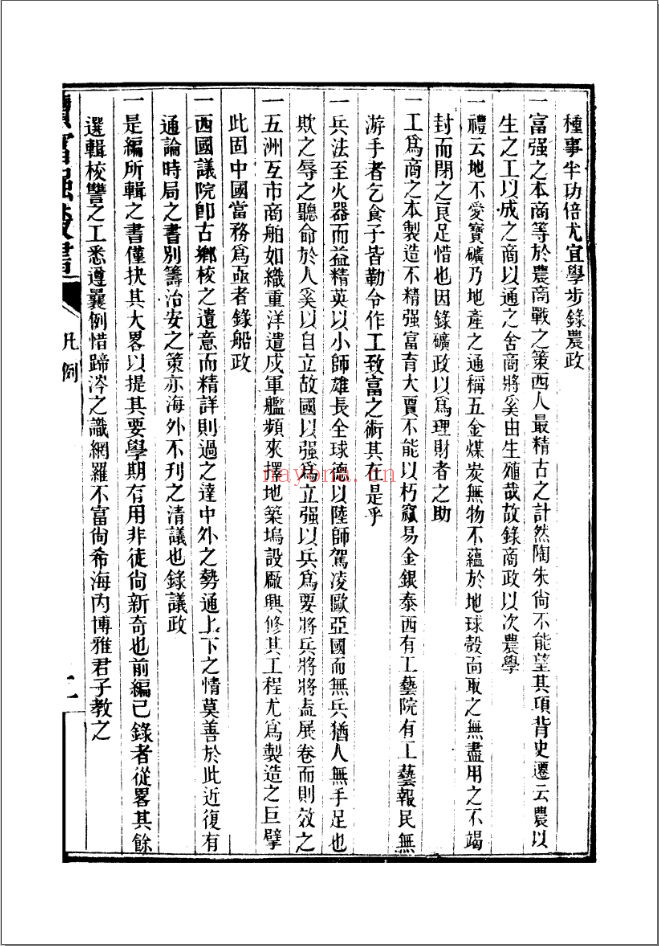 種事半功倍尤宜學步錄農政
一富强之本商等於農商戰之策西人最精古之計然陶朱尙不能望其項背史遷云農以
生之工以成之商以通之舍商將奚由生殖哉故錄商政以次農學
一禮云地不愛寶礦乃地產之通稱五金煤炭無物不蘊於地球殼面取之無盡用之不竭
封而閉之良足惜也因錄礦政以爲理財者之助
一工爲商之本製造不精强富育大賈不能以朽窳易金銀泰西有工藝院有工藝報民無
游手者乞食子皆勤令作工致富之術其在是乎
一兵法至火器而益精英以小師雄長全球德以陸師駕凌歐亞國而無兵猶人無手足也
欺之辱之聽命於人奚以自立故國以强爲立强以兵爲要將兵將將盍展卷而則效之
一五洲互市商舶如織重洋遣戍軍艦頻來擇地築塢設厰興修其工程尤爲製造之巨擘
此固中國當務爲亟者錄船政
一西國議院卽古鄉校之遺意而精詳則過之達中外之勢通上下之情莫善於此近復有
通論時局之書別籌治安之策亦海外不刋之清議也錄議政
一是編所輯之書僅抉其大畧以提其要學期有用非徒尙新奇也前編已錄者從畧其餘
選輯校讐之工悉遵曩例惜蹄涔之識網羅不富尙希海內博雅君子教之
續富强叢書
凡例
二
nayona.cn